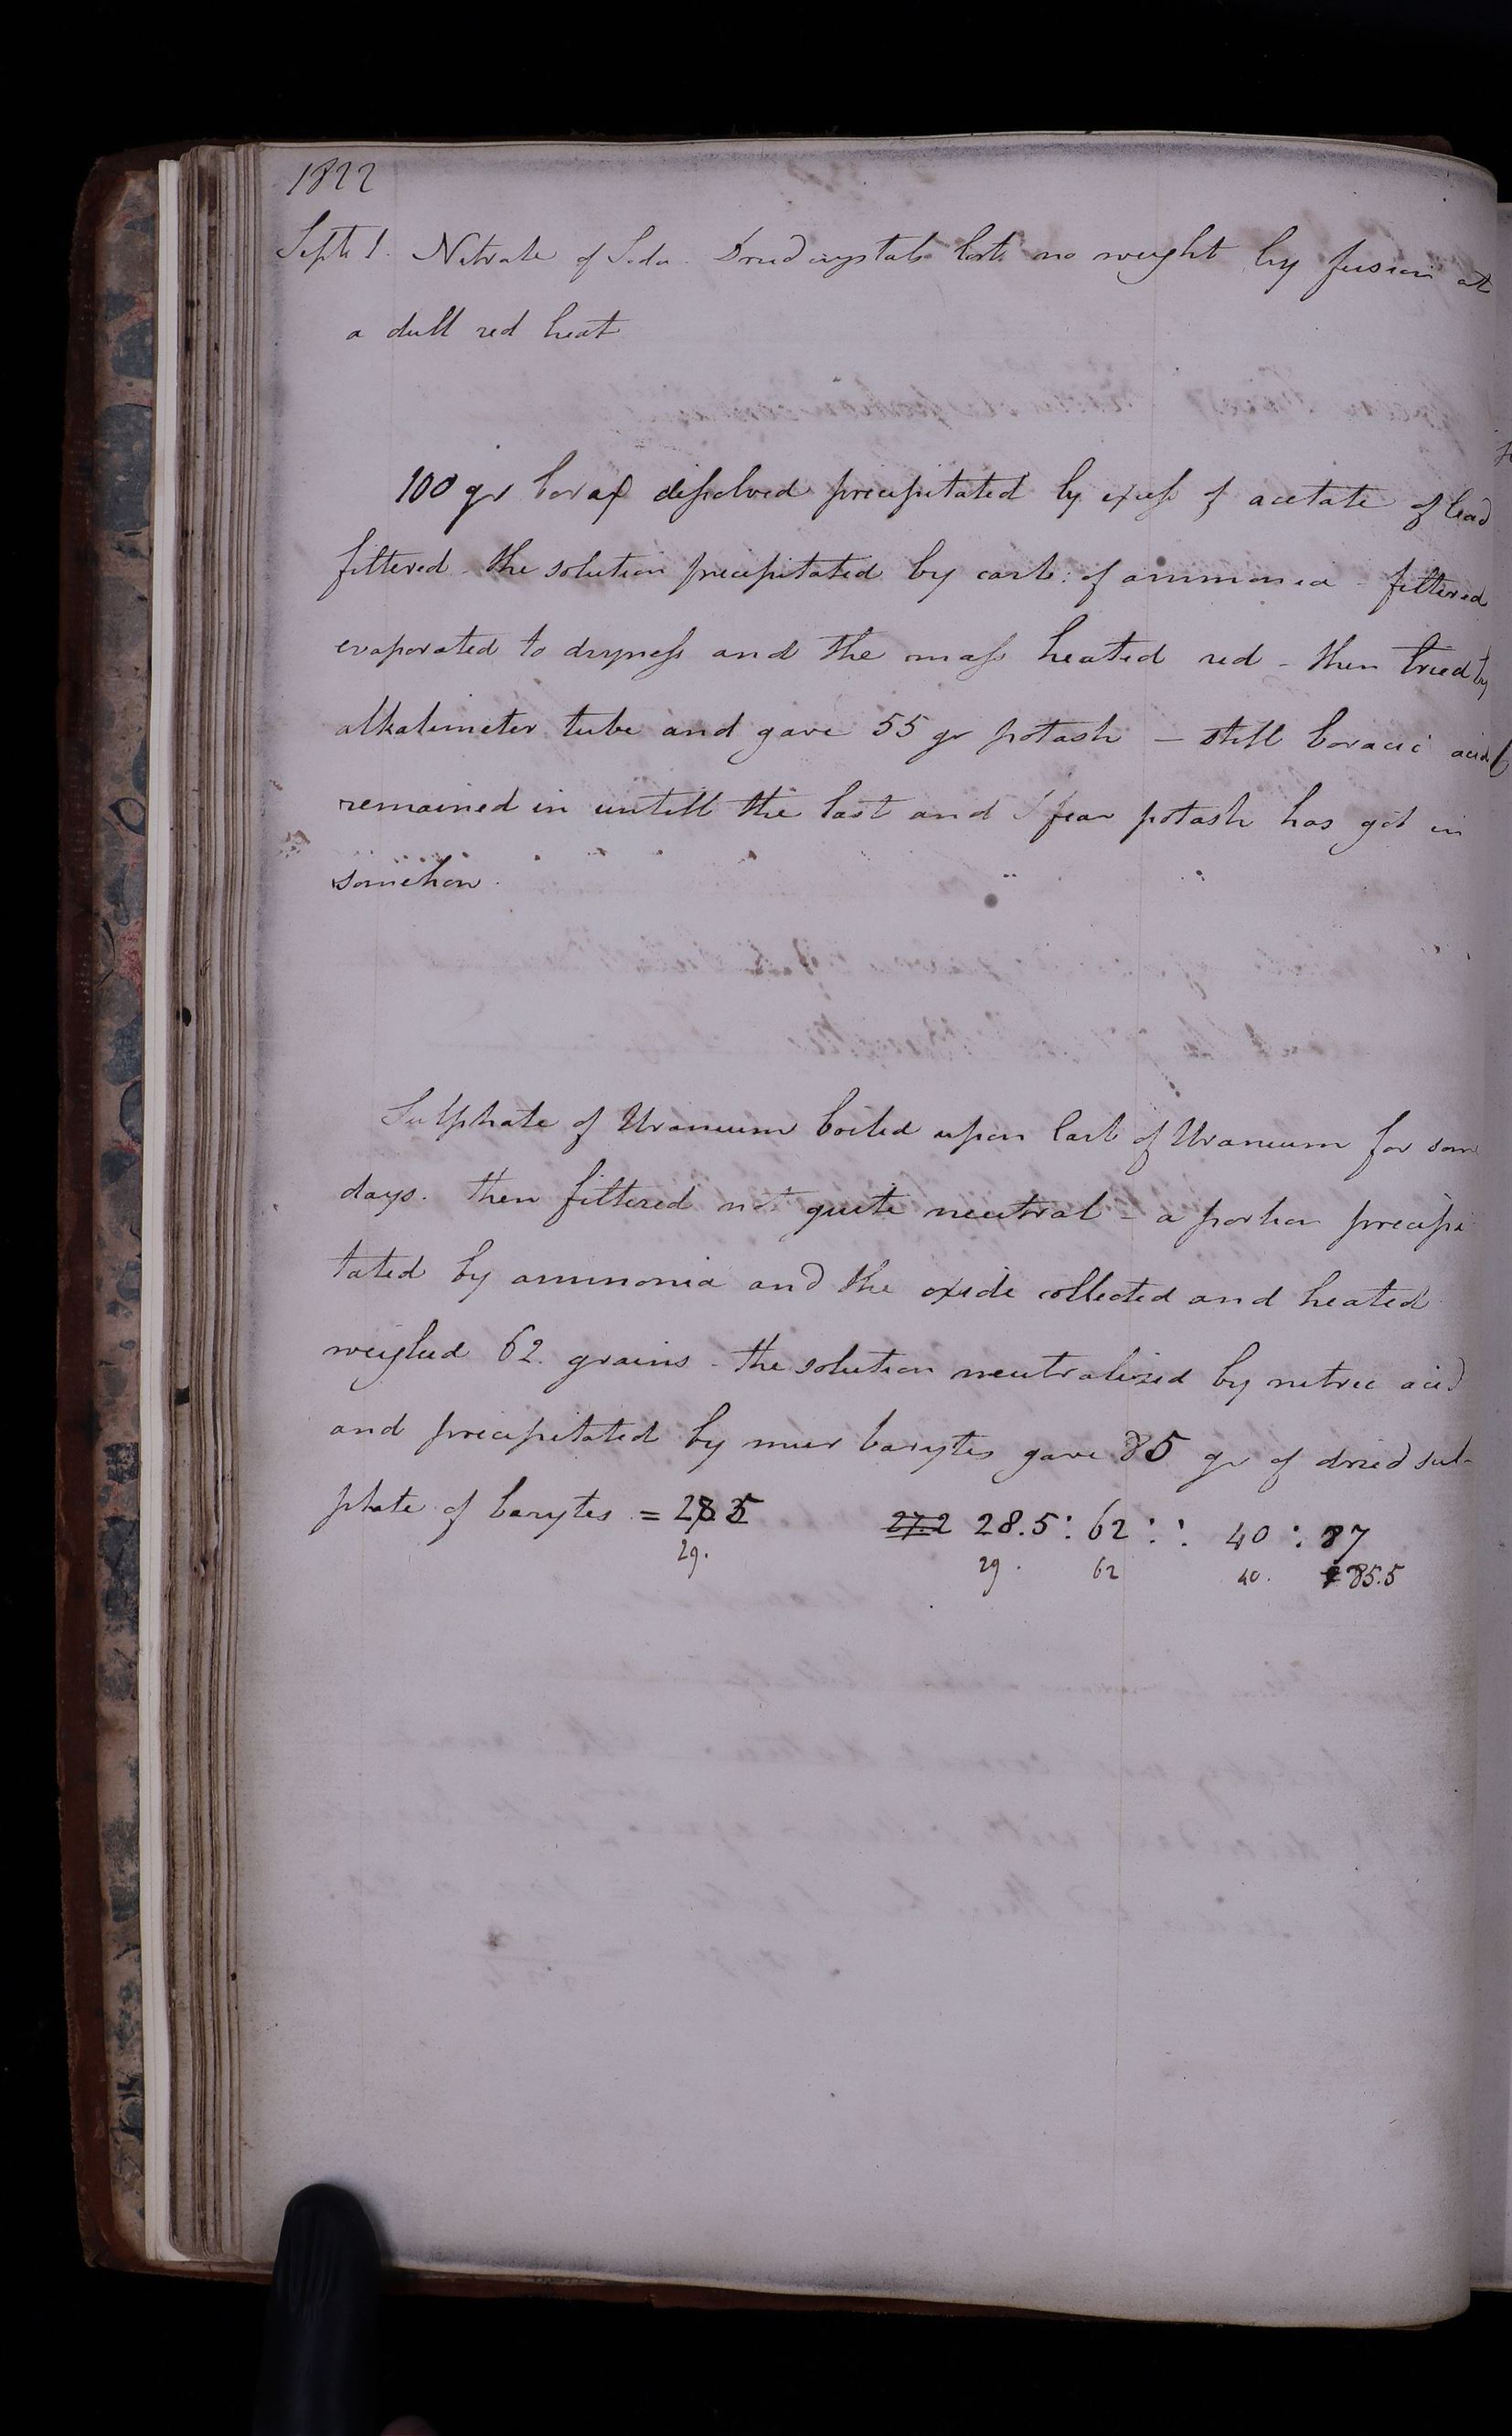 1822
Septr 1. Nitrate of Soda. Dried crystals lost no weight by fusion at
a dull red heat
100 gr borax dissolved precipitated by excess of acetate of lead
filtered - the solution precipitated by carb: of ammonia - filtered
evaporated to dryness and the mass heated red - then tried by
alkalimeter tube and gave 55 gr potash - still boracic acid
remained in untill the last and I fear potash has got in
somehow.
Sulphate of Uranium boiled upon Carb of Uranium for some
days. then filtered not quite neutral - a portion precipi
tated by ammonia and the oxide collected and heated
weighed 62. grains - the solution neutralized by nitric acid
and precipitated by mur barytes gave 85 gr of dried sul-
phate of barytes = 28.5 27.2 28.5 : 62 :: 40 : 87
29. 29. 62 40. 85.5